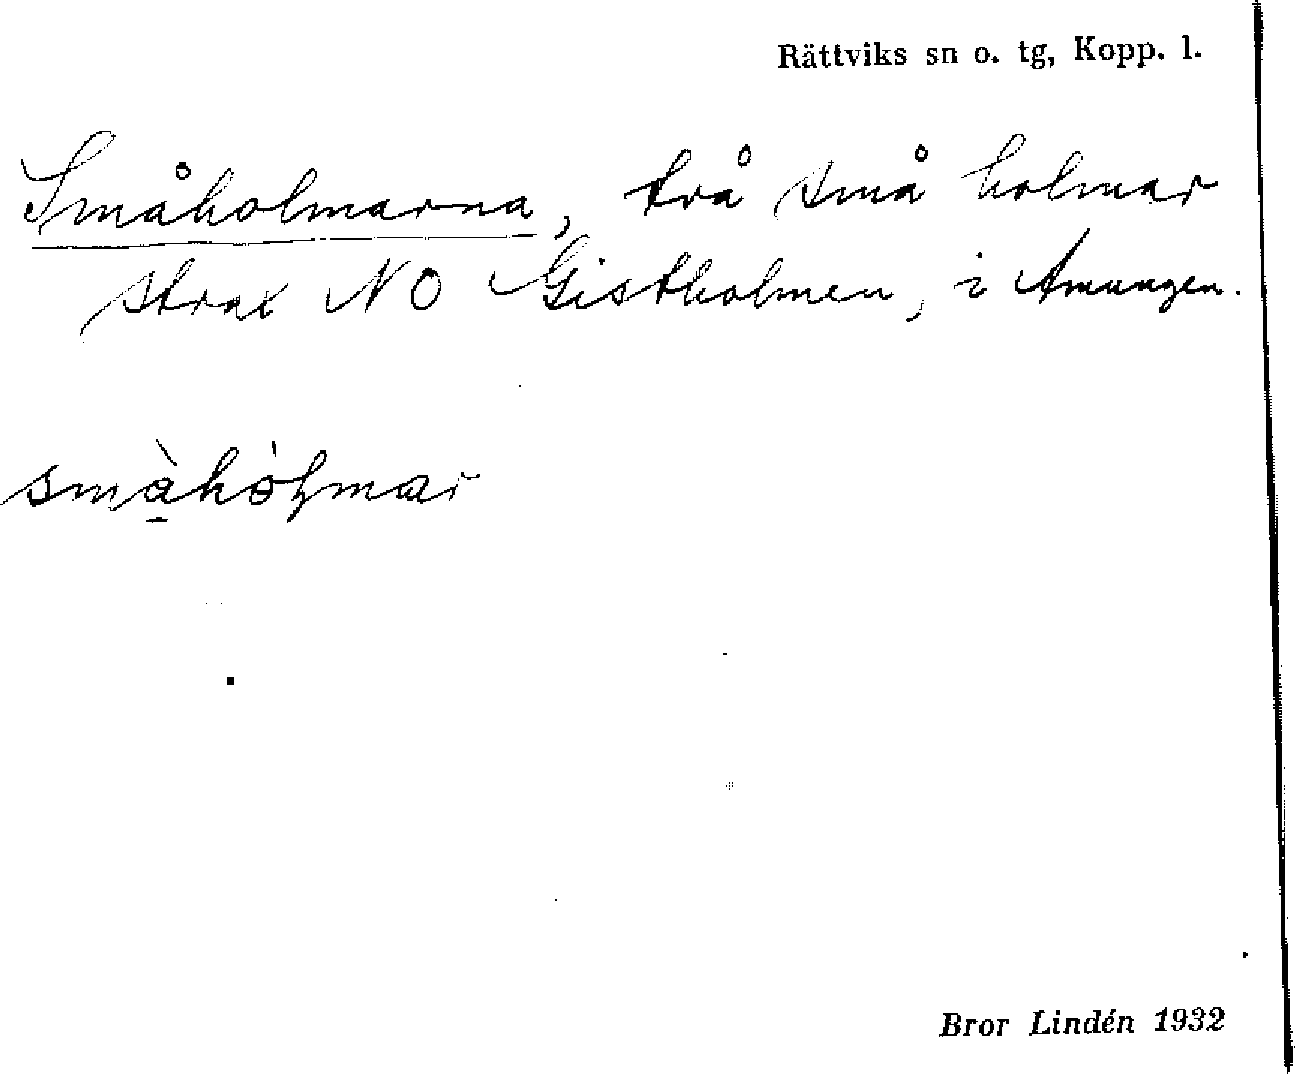 Rättviks sn o. tg, Kopp. l.
Småholmarna, två små holmar
strax NO Gistholmen, i Amungen.
småholmar
Bror Lindén 1932